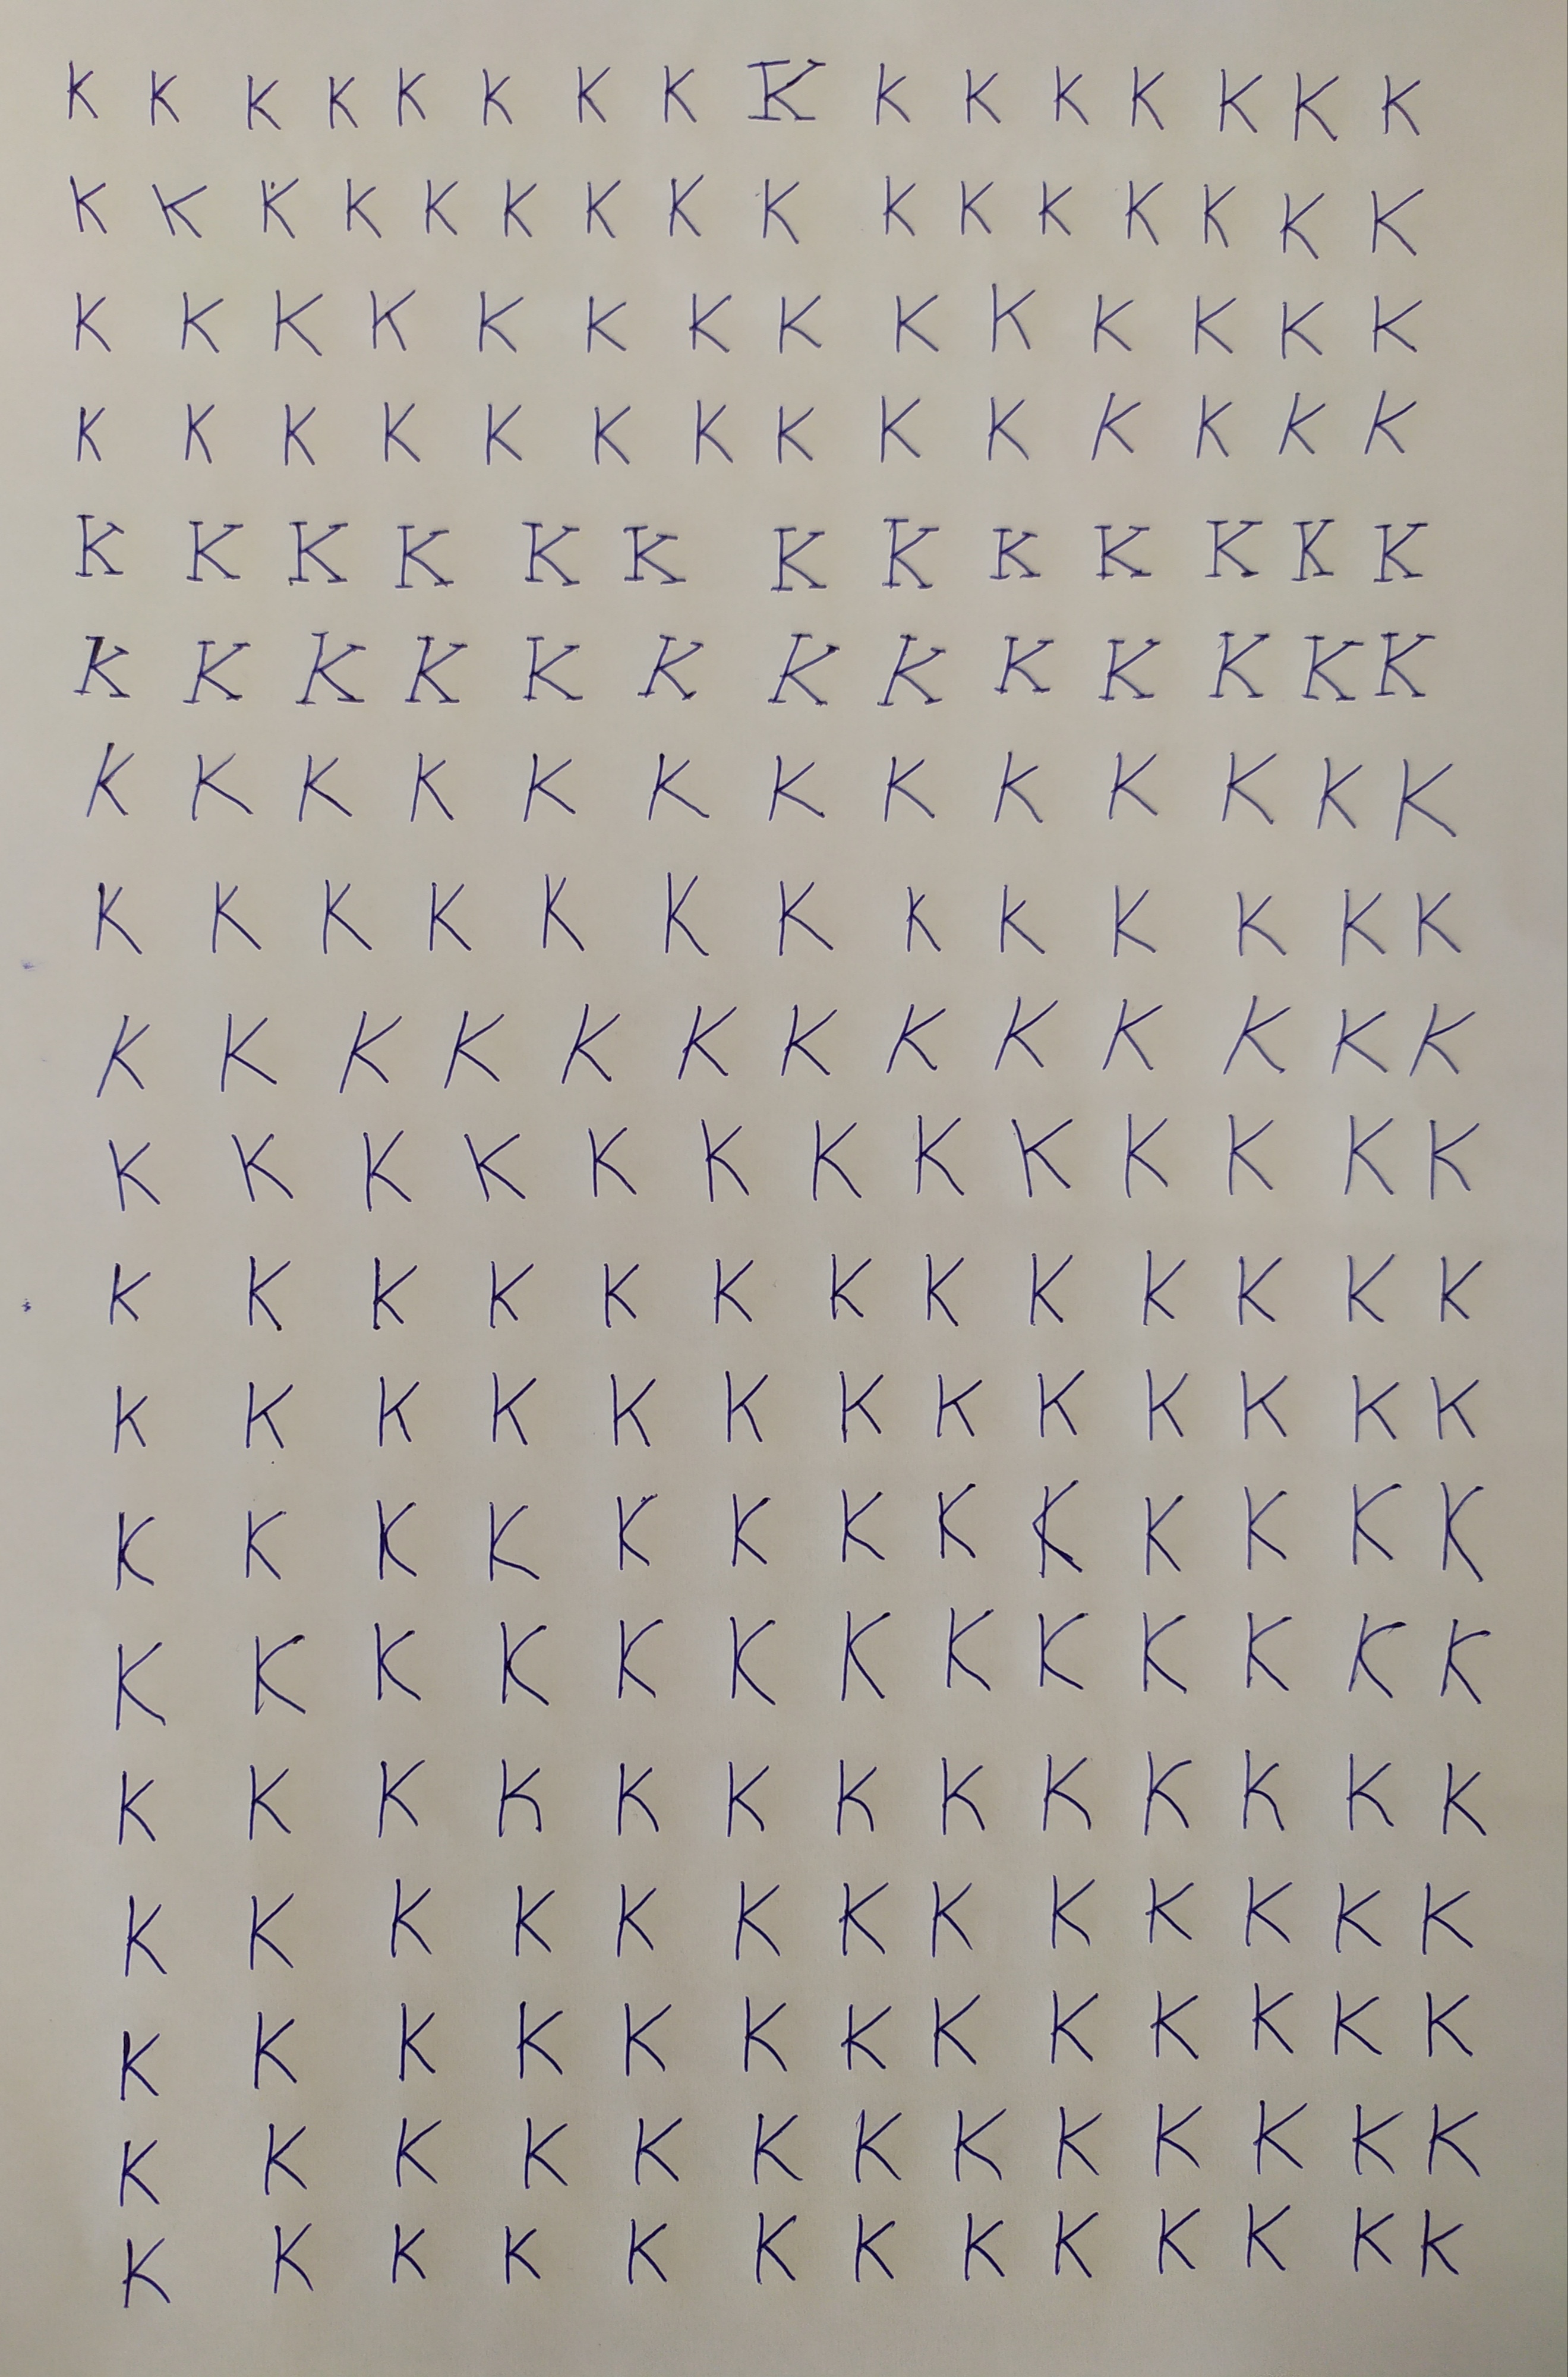 K K K K K K K K K K K K K K K K
K K K K K K K K K K K K K K K K
K K K K K K K K K K K K K K
K K K K K K K K K K K K K K
K K K K K K K K K K K K K
K K K K K K K K K K K K K
K K K K K K K K K K K K K
K K K K K K K K K K K K K
K K K K K K K K K K K K K
K K K K K K K K K K K K K
K K K K K K K K K K K K K
K K K K K K K K K K K K K
K K K K K K K K K K K K K
K K K K K K K K K K K K K
K K K K K K K K K K K K K
K K K K K K K K K K K K K
K K K K K K K K K K K K K
K K K K K K K K K K K K K
K K K K K K K K K K K K K